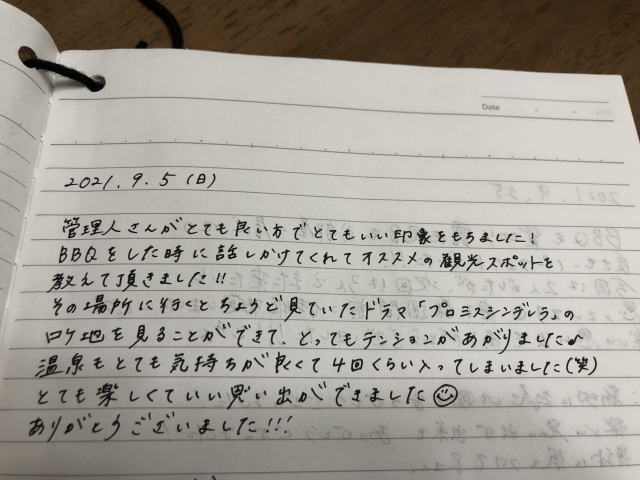 Date
2021.9.5(日)
管理人さんがとても良い方でとてもいい印象をもちました!
BBQをした時に話しかけてくれてオススメの観光スポットを
教えて頂きました!!
その場所に行くとちょうど見ていたドラマ「プロミスシンデレラ」の
ロケ地を見ることができて、とってもテンションがあがりました♪
温泉もとても気持ちが良くて4回くらい入ってしまいました(笑)
とても楽しくていい思い出ができました☺
ありがとうございました!!!